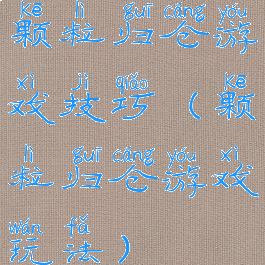 kē lì guī cāng yóu
颗粒归仓游
xì jì qiǎo kē
戏技巧（颗
lì guī cāng yóu xì
粒归仓游戏
wán fǎ
玩法）